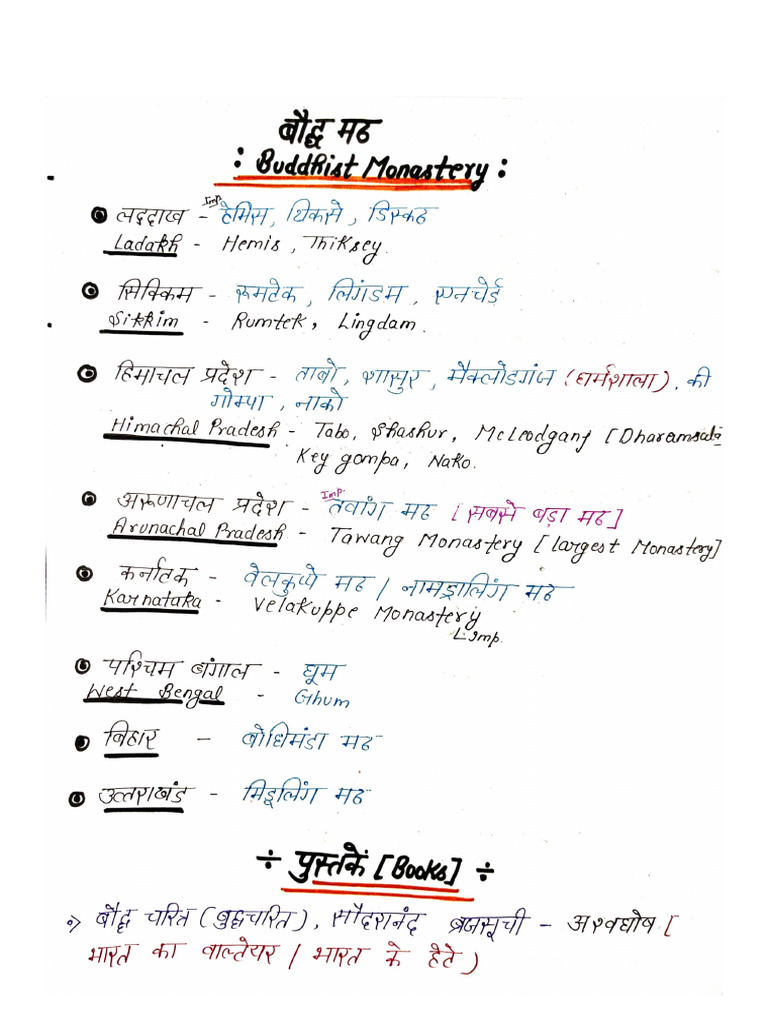 बौद्ध मठ
: Buddhist Monastery :
लद्दाख - Imp हेमिस, थिकसे, डिस्कट
Ladakh - Hemis, Thiksey.
सिक्किम - रूमटेक, लिंगडम, एनचेई
Sikkim - Rumtek, Lingdam.
हिमाचल प्रदेश - ताबो, शासुर, मैक्लोडगंज (धर्मशाला), की
गोम्पा, नाको
Himachal Pradesh - Tabo, Shashur, McLeodganj [Dharamsala
Key gompa, Nako.
अरूणाचल प्रदेश - Imp तवांग मठ [सबसे बड़ा मठ]
Arunachal Pradesh - Tawang Monastery [largest Monastery]
कर्नाटक - वेलकुप्पे मठ / नामड्रालिंग मठ
Karnataka - Velakuppe Monastery
Imp.
पश्चिम बंगाल - घूम
West Bengal - Ghum
बिहार - बोधिमंडा मठ
उत्तराखंड - मिड्रलिंग मठ
÷ पुस्तकें [Books] ÷
बौद्ध चरित (बुद्धचरित), सौदरानंद ब्रजसूची - अश्वघोष [
भारत का वाल्तेयर / भारत के हेते)